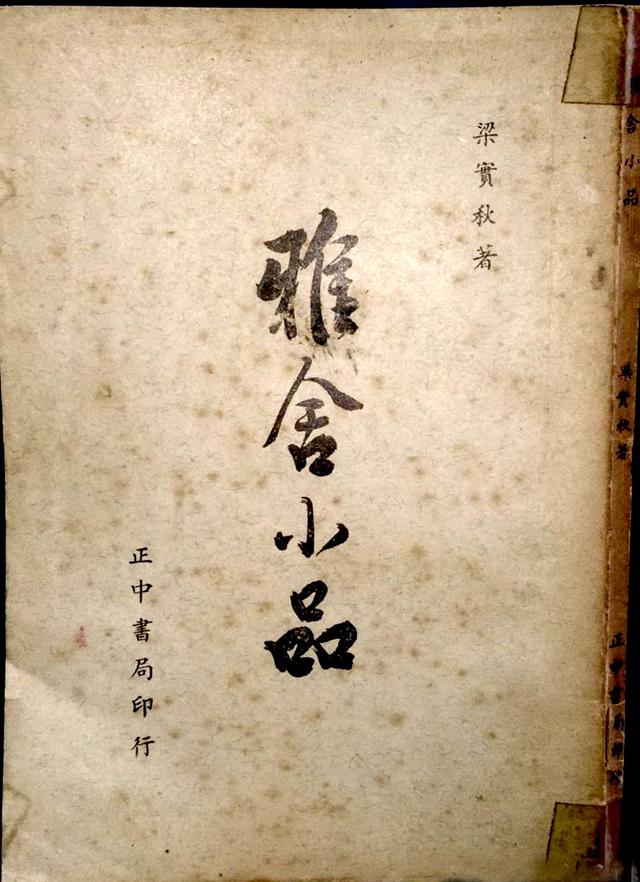 梁實秋著
雅舍小品
正中書局印行
舍小品
梁實秋著
正中書局印行